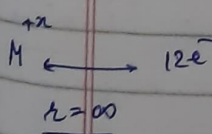 M⁺ˣ ⟷ 12e⁻
r = ∞